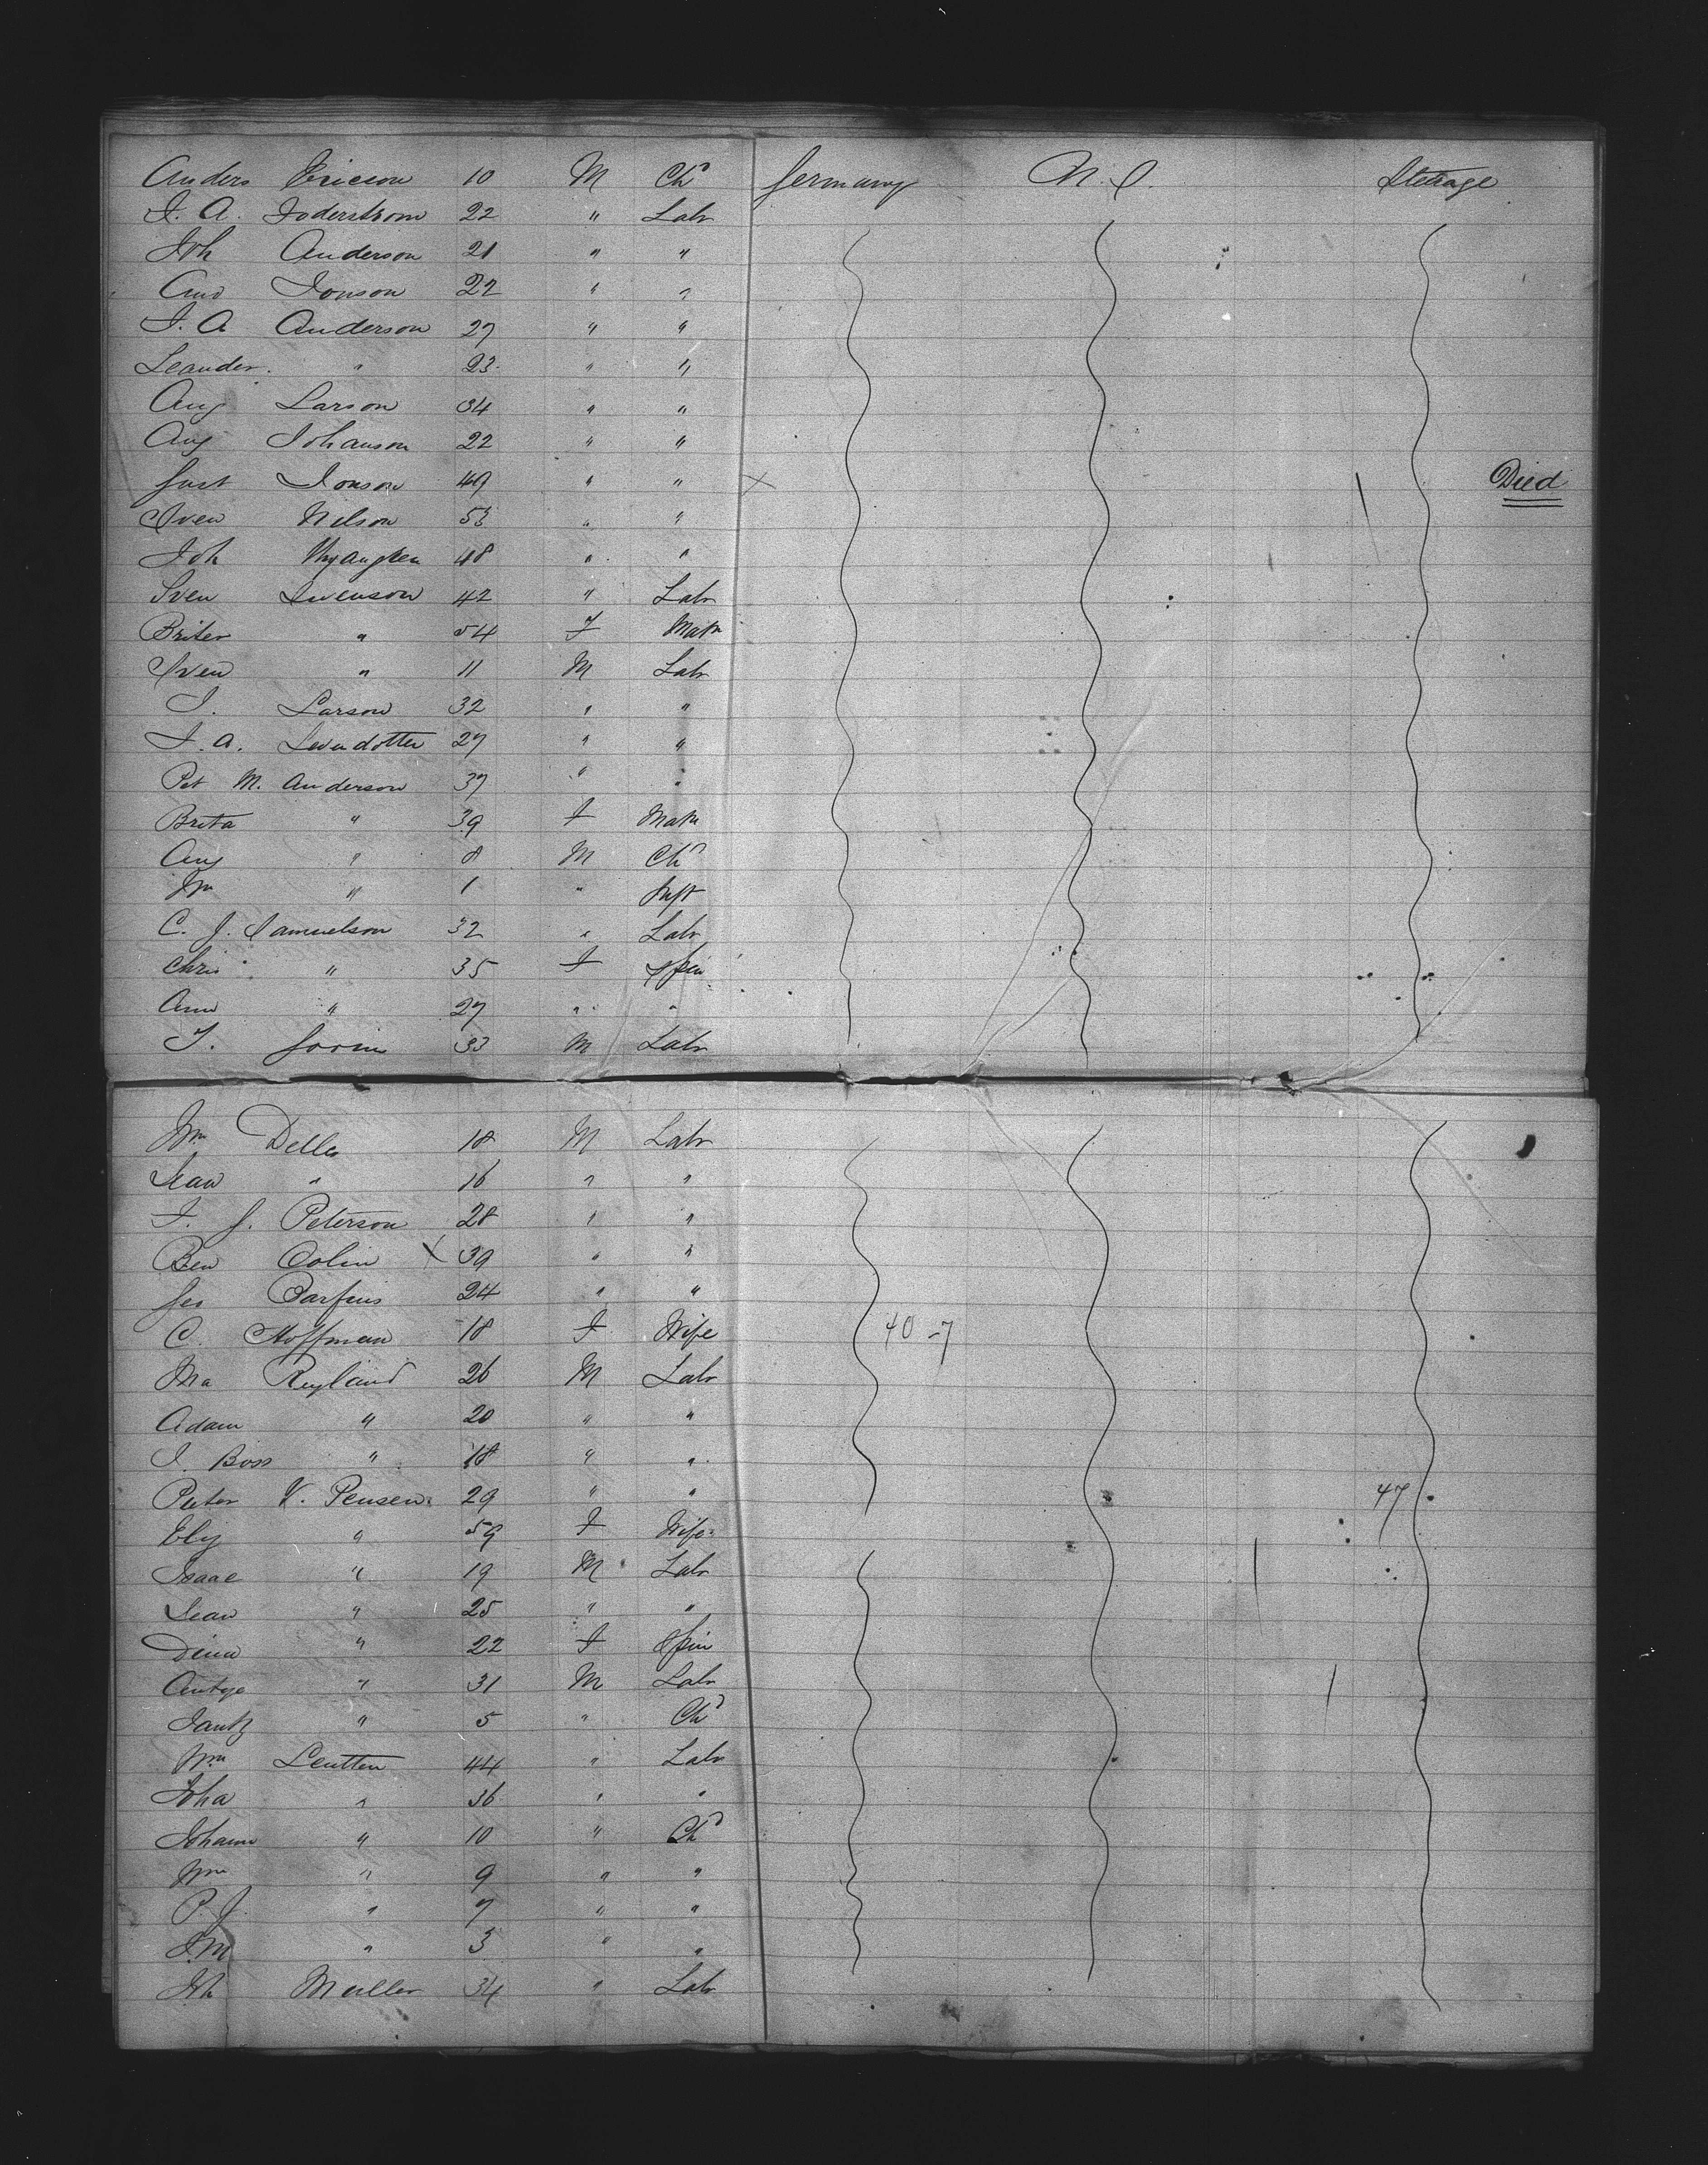 Anders Ericson 10 M Chd Germany U.S. Steerage
I. A. Soderstrom 22 " Labr
Joh Anderson 21 " "
And Jonson 22 " "
I. A Anderson 27 " "
Leander " 23 " "
Aug Larson 34 " "
Aug Johanson 22 " "
Gust Jonson 49 " " X Died
Sven Nelson 53 " "
Joh 48 " "
Sven Swenson 42 " Labr
Briter " 54 F Matr
Sven " 11 M Labr
I. Larson 32 " "
I. A. Svendotter 27 " "
Pet M. Anderson 37 " "
Brita " 39 F Matr
Aug " 8 M Chd
Wm " 1 " Inft
C. J. Samuelson 32 " Labr
Chris " 35 F Spin
Ann " 27 " "
33 M Labr
Wm Delles 18 M Labr
Jean " 16 " "
I. G. Peterson 28 " "
Ben Colin X 39 " "
Geo 24 " "
C. Hoffman 18 F Wife 40-7
Ma Reyland 26 M Labr
Adam " 20 " "
I. Boss " 18 " "
Peter V. Pensen 29 " " 47
Elis " 59 F Wife
Isaac " 19 M Labr
Jean " 25 " "
Dina " 22 F Spin
Antge " 31 M Labr
Jantz " 5 " Chd
Wm Leutten 44 " Labr
Joha " 36 " "
Johann " 10 " Chd
Wm " 9 " "
P. J. " 7 " "
J. M " 3 " "
Joh Muller 34 " Labr